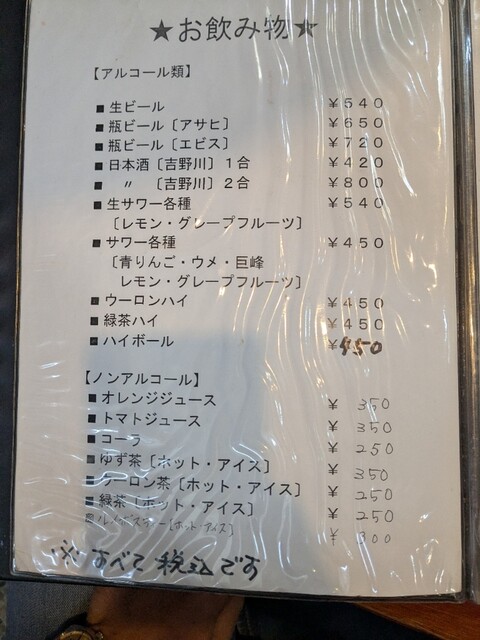 ★お飲み物★
【アルコール類】
■生ビール ￥５４０
■瓶ビール〔アサヒ〕 ￥６５０
■瓶ビール〔エビス〕 ￥７２０
■日本酒〔吉野川〕１合 ￥４２０
■　〃　〔吉野川〕２合 ￥８００
■生サワー各種 ￥５４０
〔レモン・グレープフルーツ〕
■サワー各種 ￥４５０
〔青りんご・ウメ・巨峰
レモン・グレープフルーツ〕
■ウーロンハイ ￥４５０
■緑茶ハイ ￥４５０
■ハイボール ￥450
【ノンアルコール】
■オレンジジュース ￥ 350
■トマトジュース ￥ 350
■コーラ ￥ 250
■ゆず茶〔ホット・アイス〕 ￥ 350
■ウーロン茶〔ホット・アイス〕 ￥ 250
■緑茶〔ホット・アイス〕 ￥ 250
[ホット・アイス] ￥ 300
※ すべて税込です